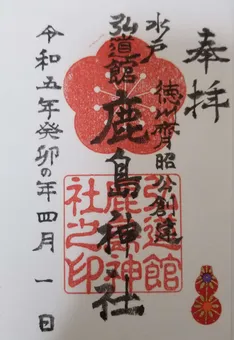 奉拝
水戸 徳川斉昭公創建
弘道館 鹿島神社
令和五年癸卯の年四月一日
弘道館
鹿島神
社之印